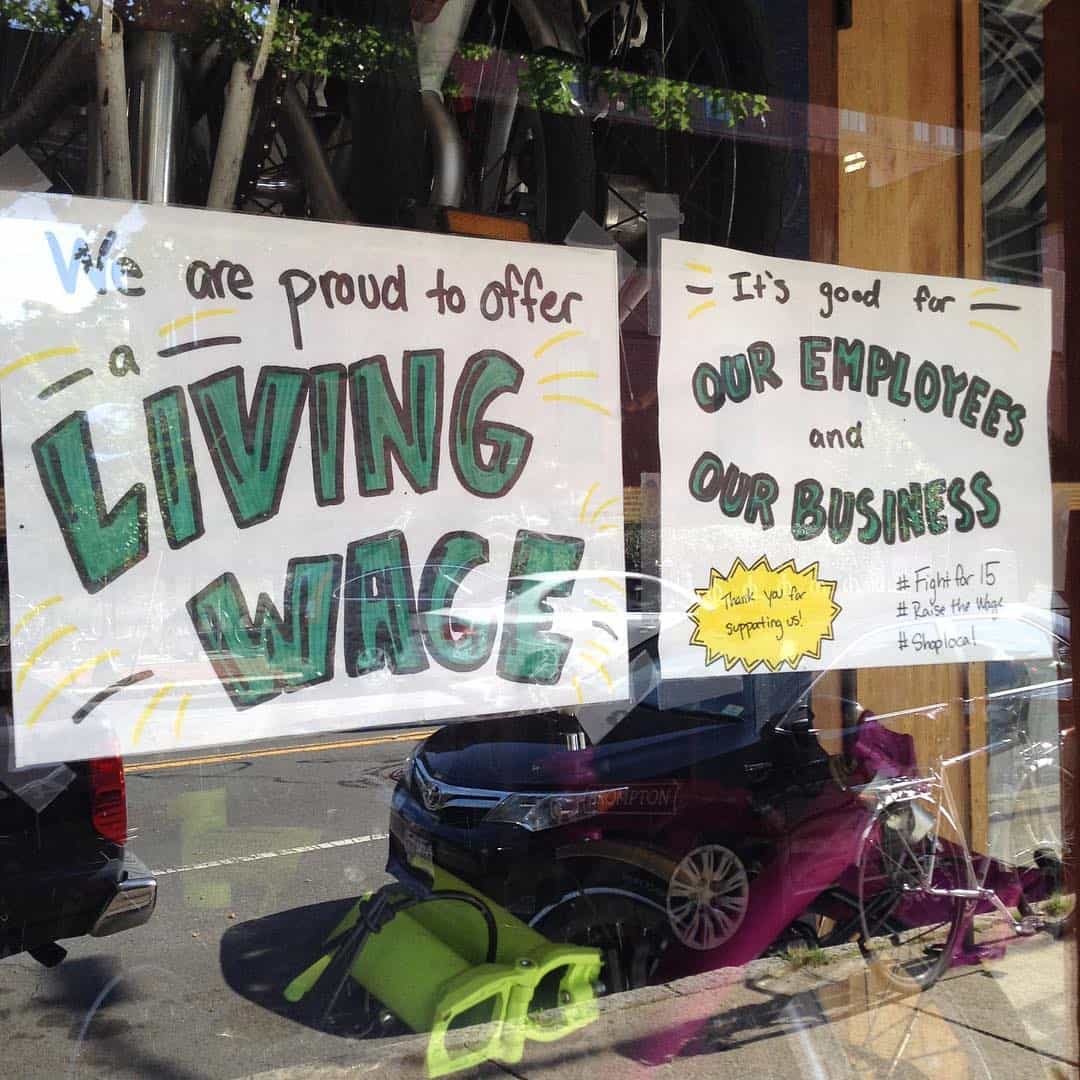 We are proud to offer
a
LIVING
WAGE
It's good for
OUR EMPLOYEES
and
OUR BUSINESS
Thank you for
supporting us!
# Fight for 15
# Raise the Wage
# Shoplocal
BROMPTON